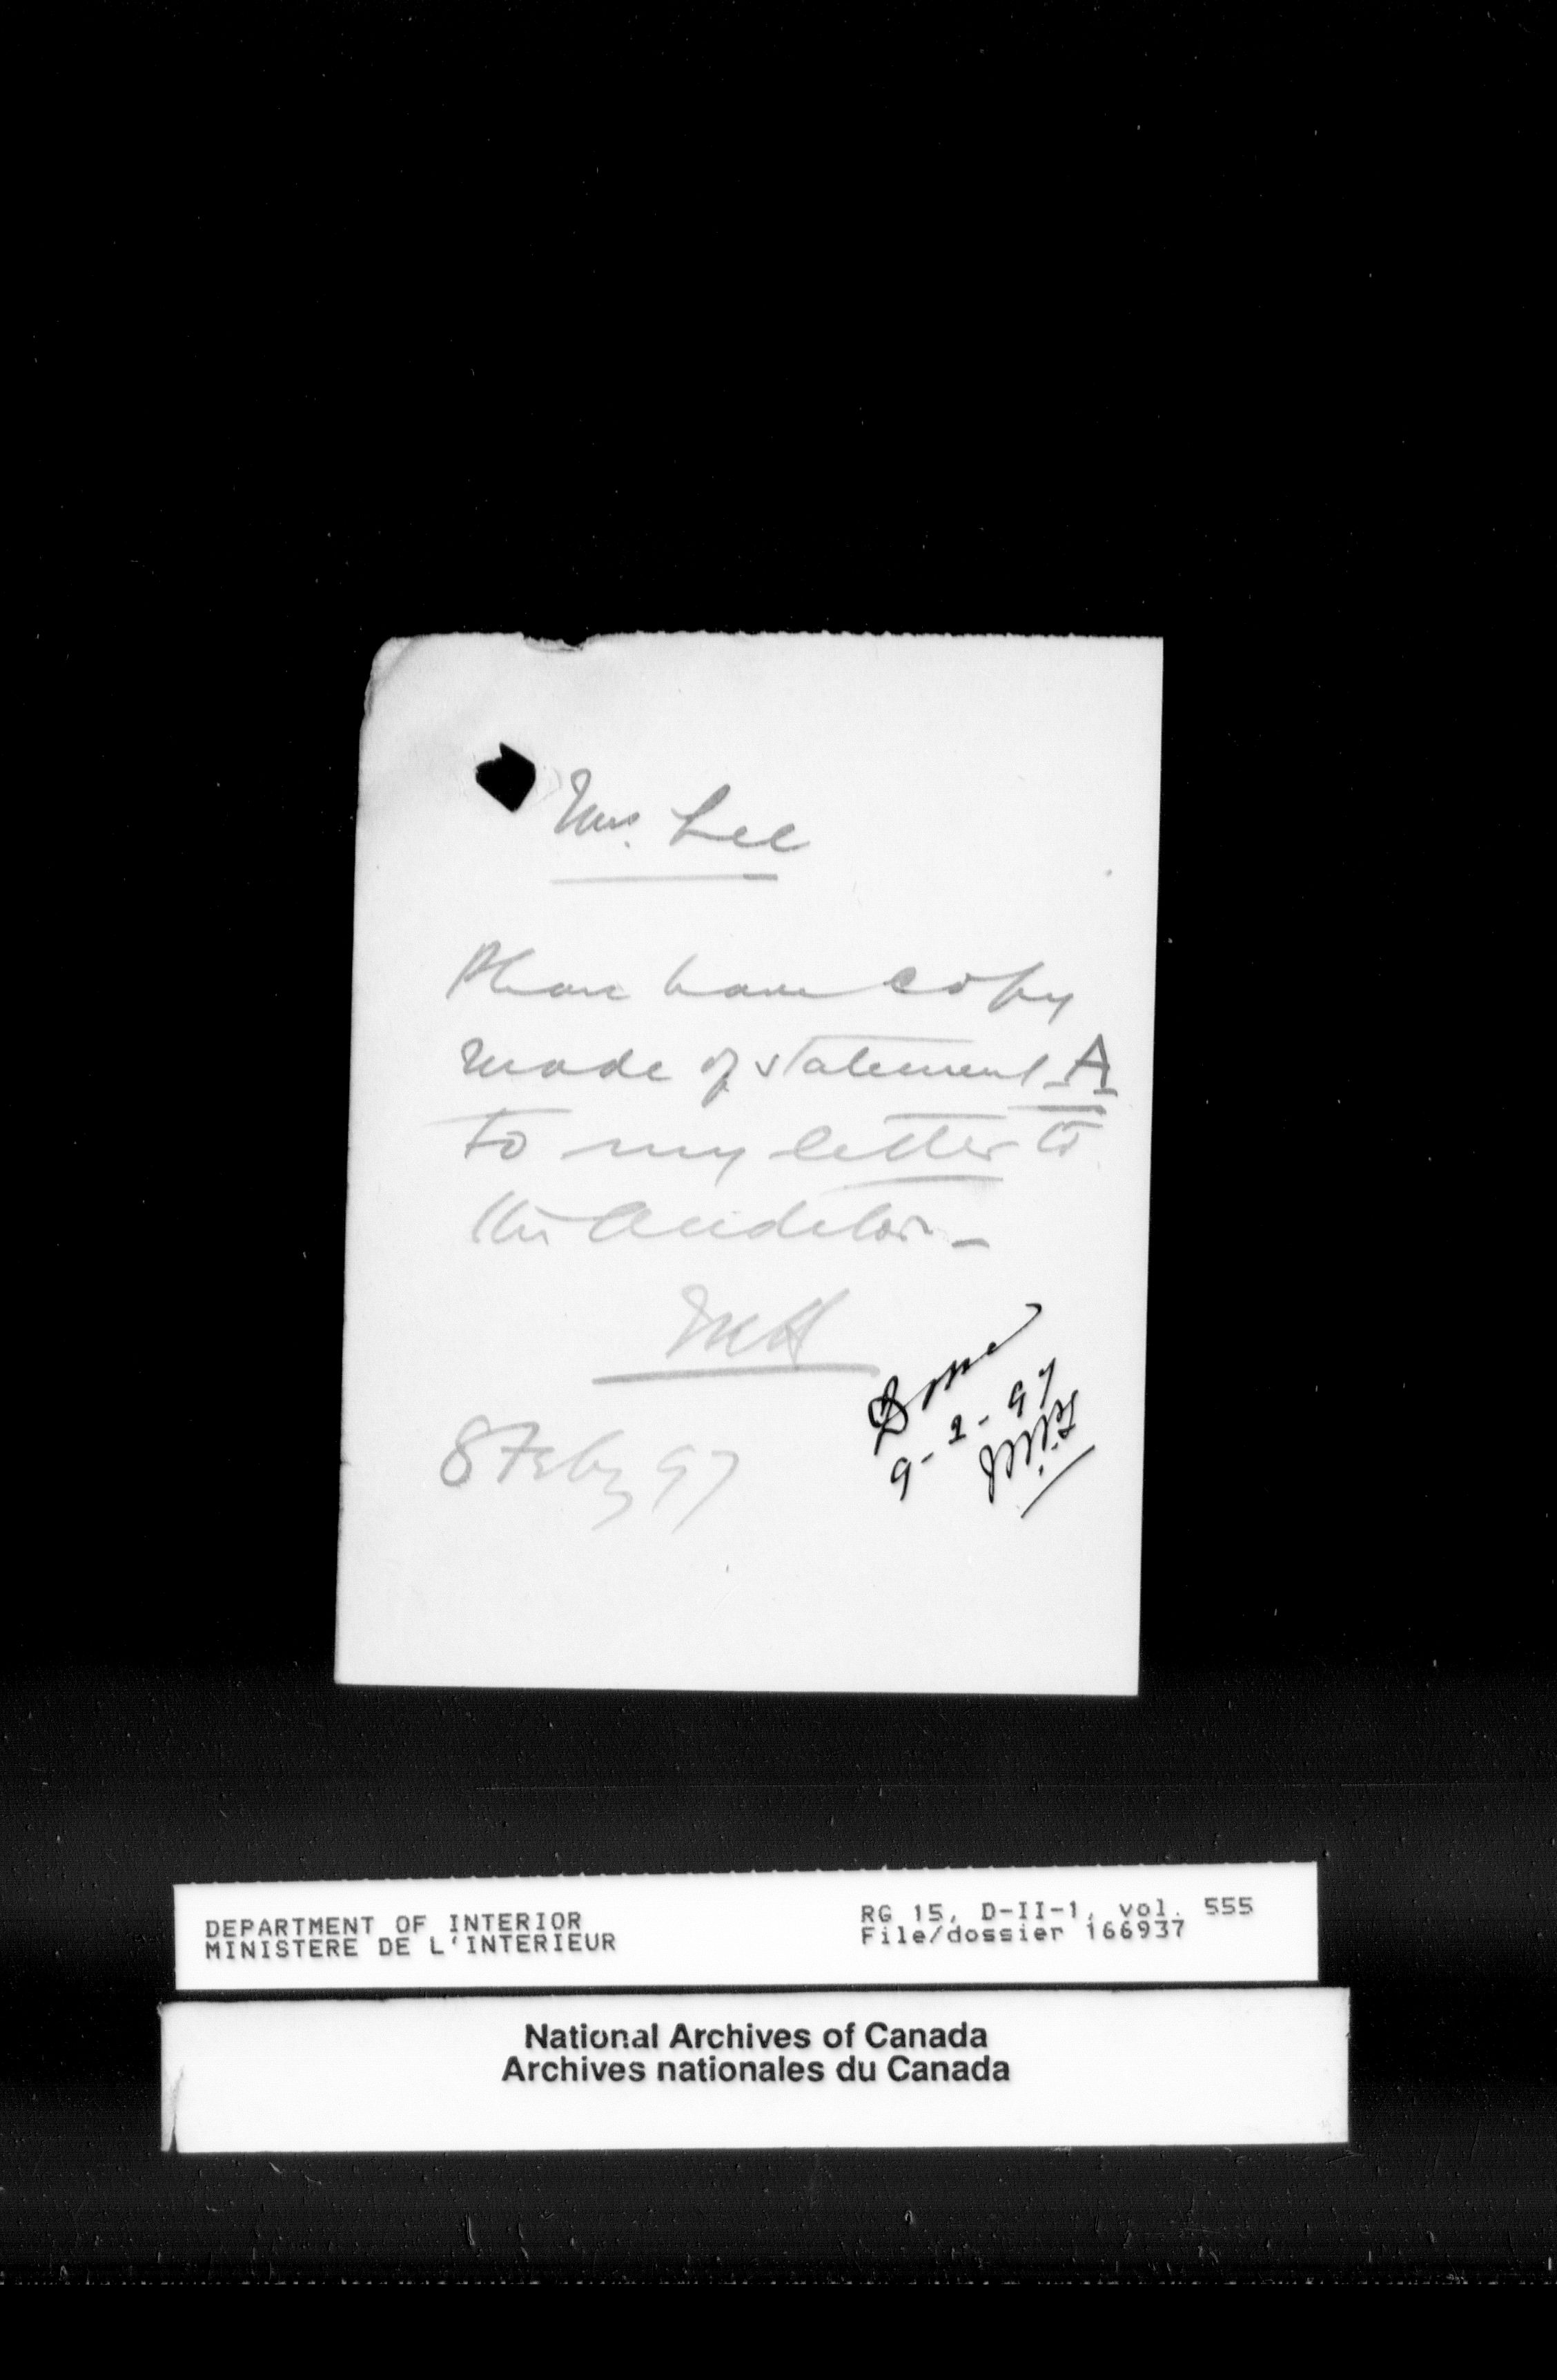 Mrs. Lee
Please have copy
made of statement A
to my letter to
the Auditor -
8 Feby 97
Done
9-2-97
DEPARTMENT OF INTERIOR
MINISTERE DE L'INTERIEUR
RG 15, D-II-1, vol. 555
File/dossier 166937
National Archives of Canada
Archives nationales du Canada